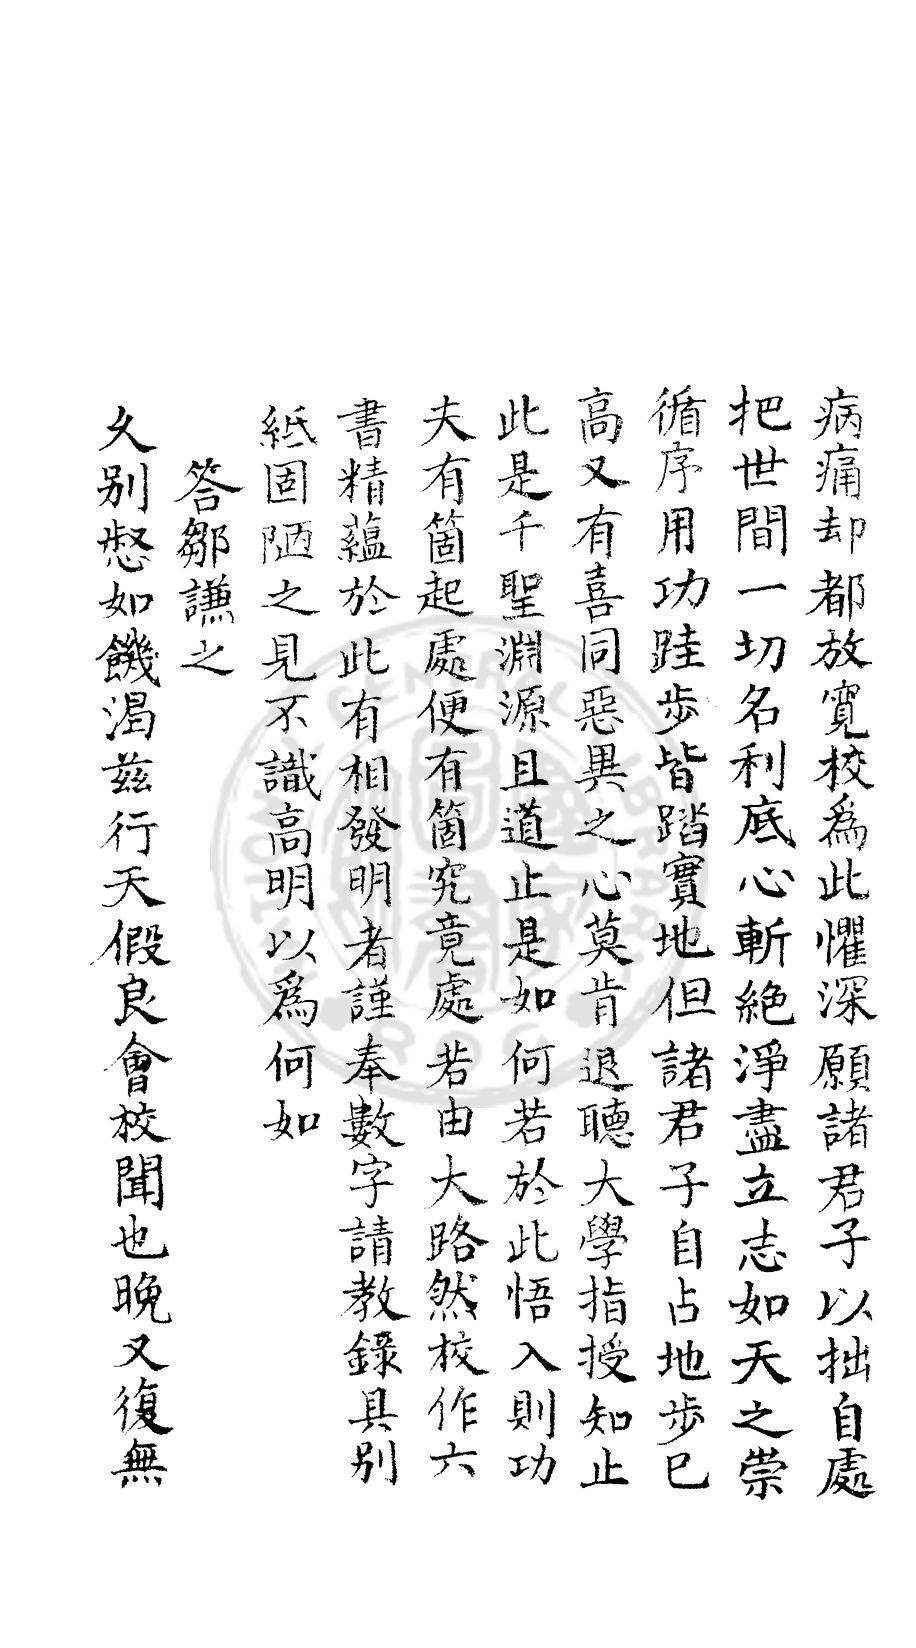 病痛却都放寬校爲此懼深願諸君子以拙自處
把世間一切名利底心斬絶淨盡立志如天之崇
循序用功跬步皆踏實地但諸君子自占地步已
高又有喜同惡異之心莫肯退聽大學指授知止
此是千聖淵源且道止是如何若於此悟入則功
夫有箇起處便有箇究竟處若由大路然校作六
書精蘊於此有相發明者謹奉數字請教錄具别
紙固陋之見不識高明以爲何如
答鄒謙之
久别惄如饑渴兹行天假良會校聞也晚又復無